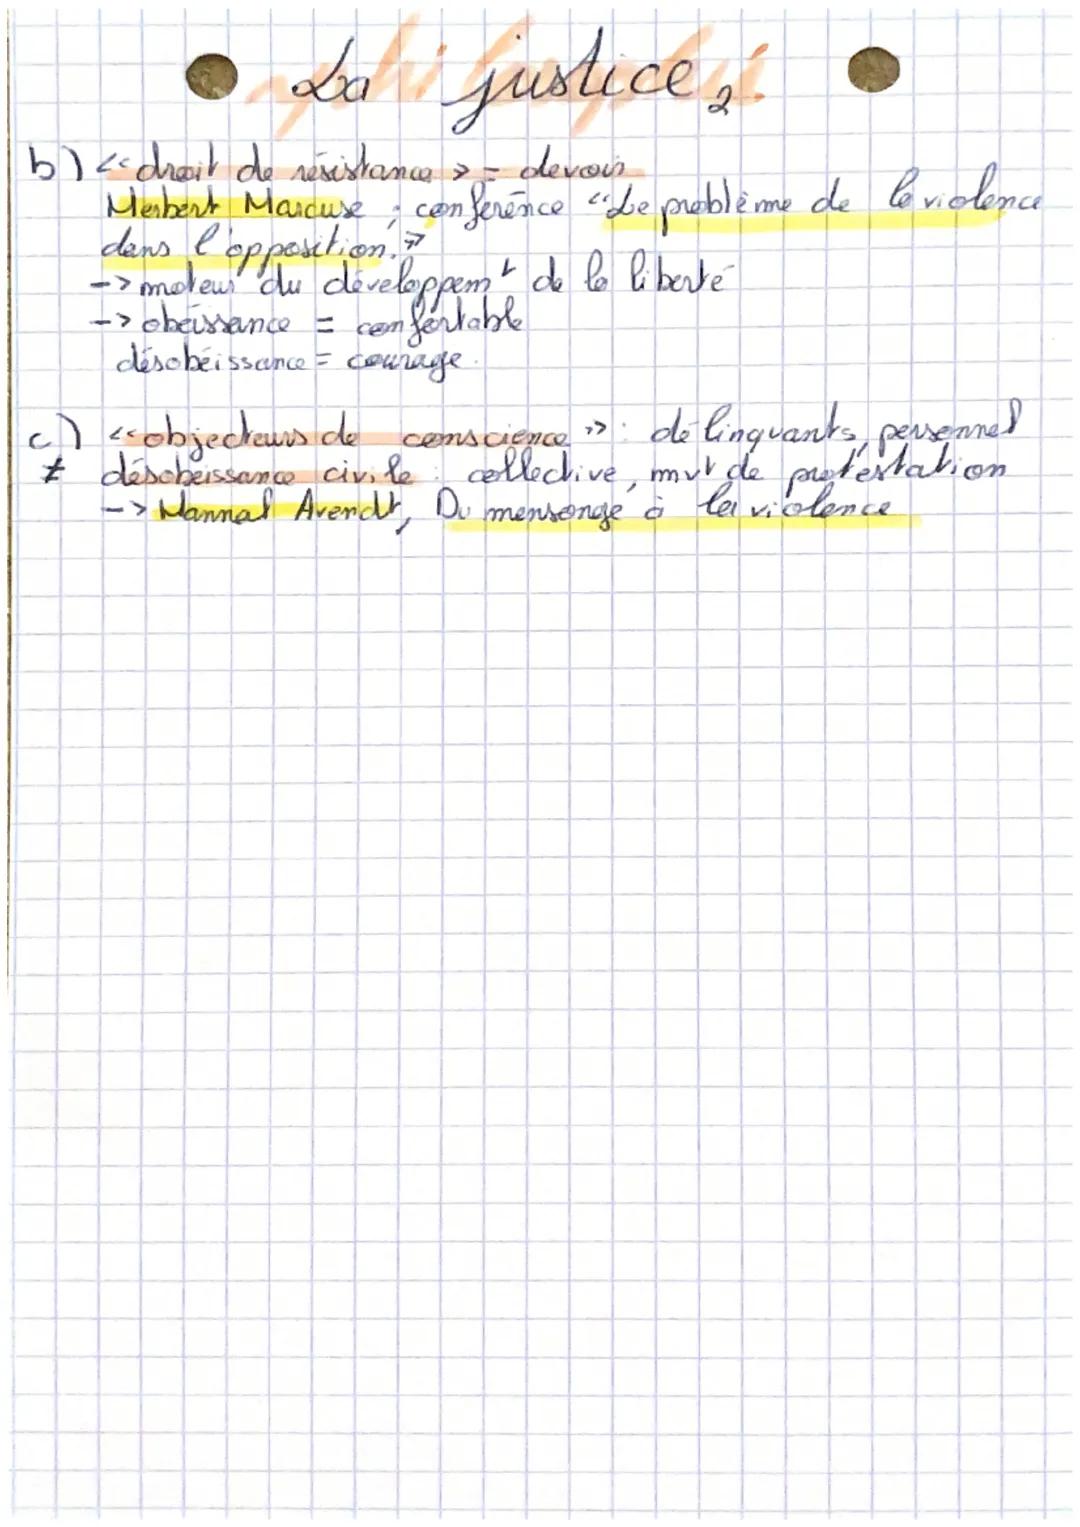 La justice 2
b) «droit de résistance» = devoir
Herbert Marcuse ; conférence "Le problème de la violence
dans l'opposition."
-> moteur du développemt de la liberté
-> obéissance = confortable
désobéissance = courage.
c) «objecteurs de conscience» : délinquants, personnel
≠ désobeissance civile : collective, mvt de protestation
-> Hannat Arendt, Du mensonge à la violence